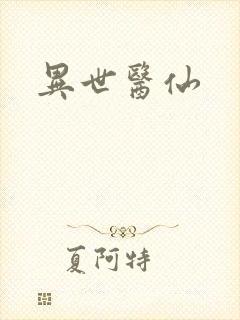 異世醫仙
夏阿特